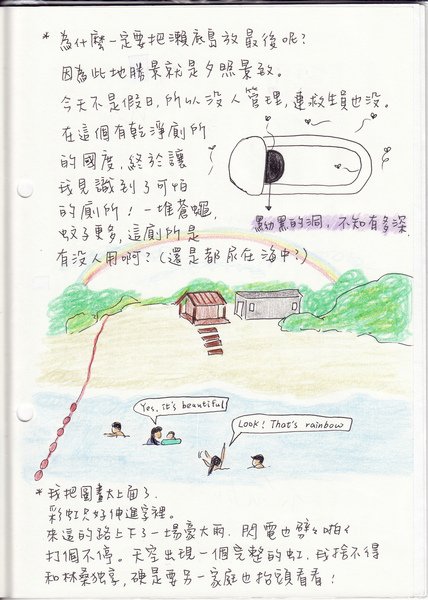 * 為什麼一定要把瀨底島放最後呢?
因為此地勝景就是夕照景致。
今天不是假日,所以沒人管理,連救生員也沒。
在這個有乾淨廁所
的國度,終於讓
我見識到了可怕
的廁所!一堆蒼蠅,
蚊子更多,這廁所是
有沒人用啊?(還是都尿在海中?)
黝黑的洞,不知有多深
Yes, it's beautiful
Look! That's rainbow
* 我把圖畫太上面了.
彩虹只好伸進字裡。
來這的路上下了一場豪大雨.閃電也劈劈啪啪
打個不停。天空出現一個完整的虹.我捨不得
和林桑獨享,硬是要另一家庭也抬頭看看!